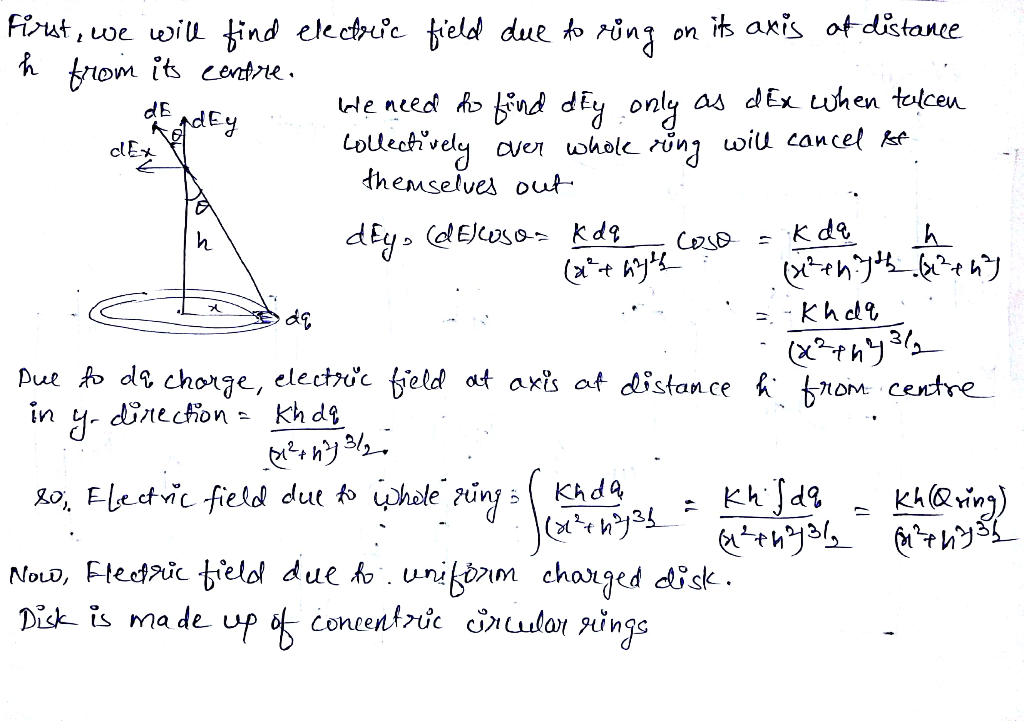 First, we will find electric field due to ring on its axis at distance
h from its centre.
dE dEy
dEx
θ
θ
h
x
dq
We need to find dEy only as dEx when taken
collectively over whole ring will cancel
themselves out
dEy = (dE)cosθ = Kdq/(x²+h²)^1/2 cosθ = Kdq/(x²+h²)^1/2 . h/(x²+h²)
= Khdq/(x²+h²)^3/2
Due to dq charge, electric field at axis at distance h from centre
in y-direction = Khdq/(x²+h²)^3/2.
So, Electric field due to whole ring = ∫ Khdq/(x²+h²)^3/2 = Kh∫dq/(x²+h²)^3/2 = Kh(Qring)/(x²+h²)^3/2
Now, Electric field due to uniform charged disk.
Disk is made up of concentric circular rings